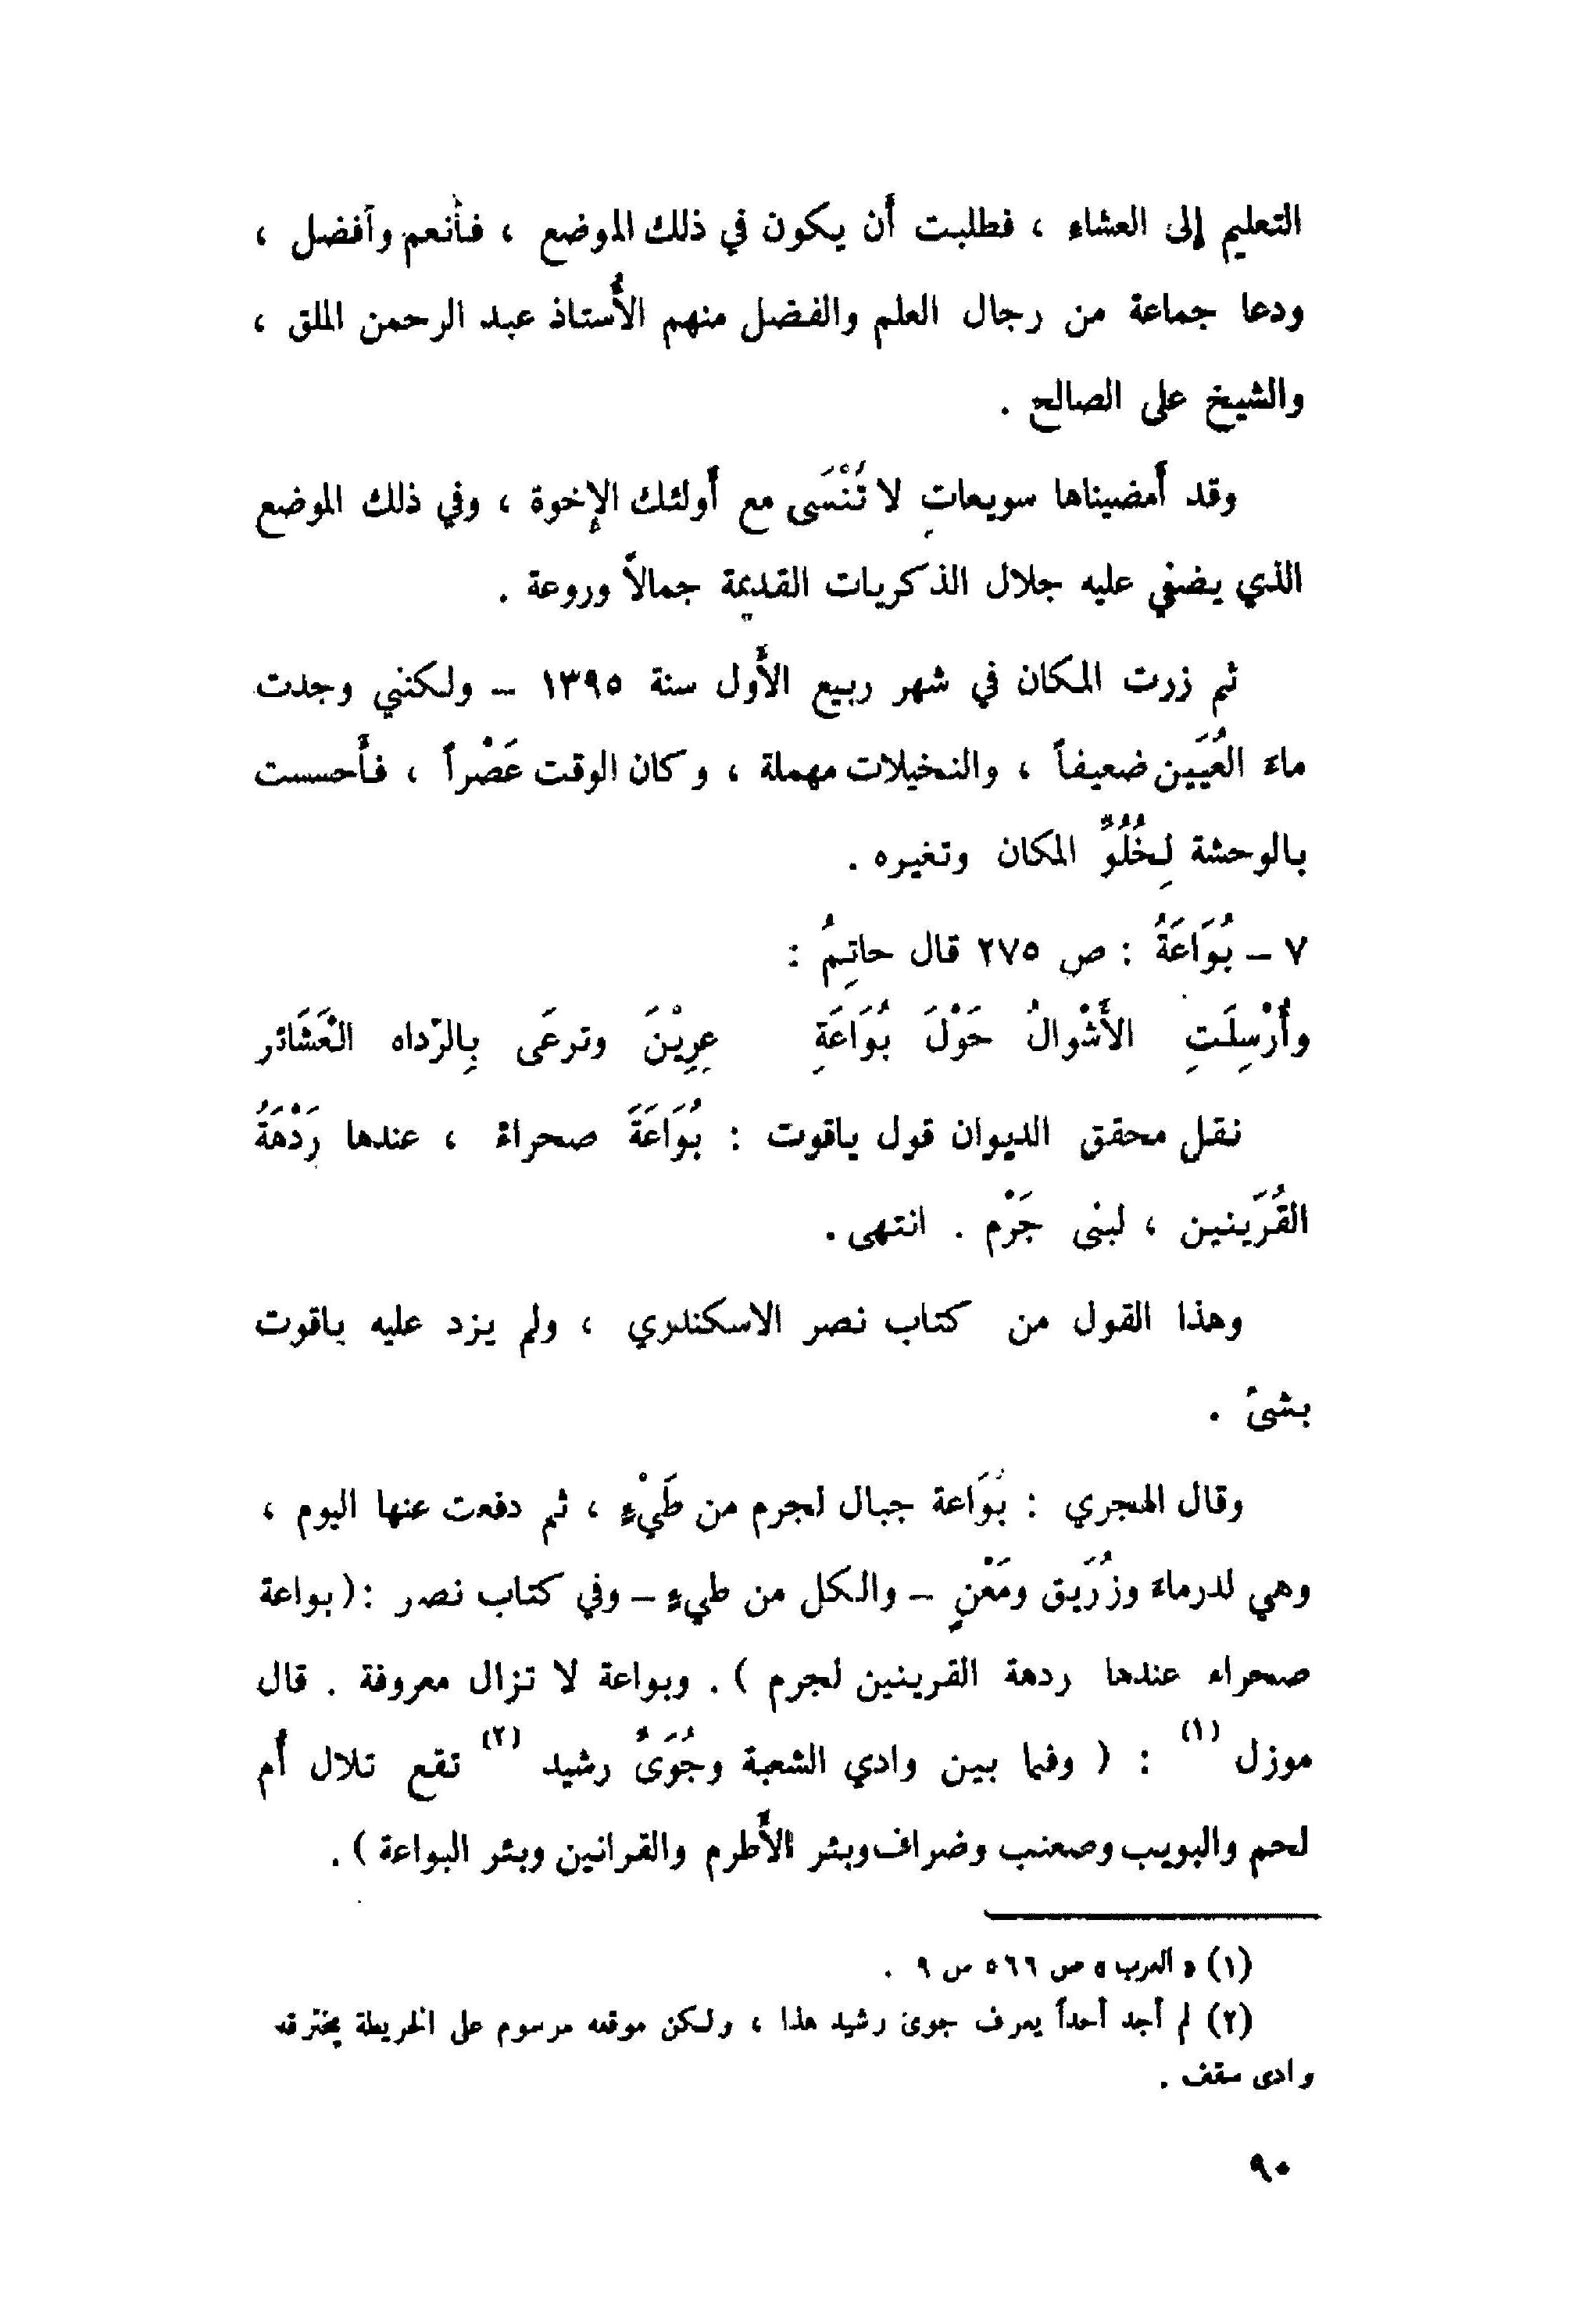 التعليم إلى العشاء ، فطلبت أن يكون في ذلك الموضع ، فأنعم وأفضل ،
ودعا جماعة من رجال العلم والفضل منهم الأُستاذ عبد الرحمن الملق ،
والشيخ على الصالح .
وقد أَمضيناها سويعاتٍ لا تُنْسَى مع أُولئك الإخوة ، وفي ذلك الموضع
الذي يضفي عليه جلال الذكريات القديمة جمالاً وروعة .
ثم زرت المكان في شهر ربيع الأَول سنة ١٣٩٥ – ولكنني وجدت
ماءَ العُيَيْن ضعيفاً ، والنخيلات مهملة ، وكان الوقت عَصْراً ، فأَحسست
بالوحشة لِخُلُوِّ المكان وتغيره .
٧ – بُوَاعَةُ : ص ٢٧٥ قال حاتِمُ :
وأُرْسِلَتِ الأَشْوالُ حَوْلَ بُوَاعَةِ عِرِيْنَ وترعَى بِالرّداه الْعَشَائر
نقل محقق الديوان قول ياقوت : بُوَاعَةَ صحراءُ ، عندها رَدْهَةُ
القُرَينين ، لبنى جَرْم . انتهى .
وهذا القول من كتاب نصر الاسكندري ، ولم يزد عليه ياقوت
بشئ .
وقال الهجري : بُوَاعة جبال لجرم من طَيْءٍ ، ثم دفعت عنها اليوم ،
وهي لدرماءَ وزُرَيق ومَعْنٍ – والكل من طيءٍ – وفي كتاب نصر :(بواعة
صحراء عندها ردهة القرينين لجرم ) . وبواعة لا تزال معروفة . قال
موزل (١) : ( وفيما بين وادي الشعبة وجُوَىُّ رشيد (٢) تقع تلال أُم
لحم والبويب وصعنب وضراف وبئر الأَطرم والقرانين وبئر البواعة ) .
(١) « العرب » ص ٥٦٦ س ٩ .
(٢) لم أجد أحداً يعرف جوى رشيد هذا ، ولكن موقعه مرسوم على الخريطة يخترقه
وادى سقف .
٩٠